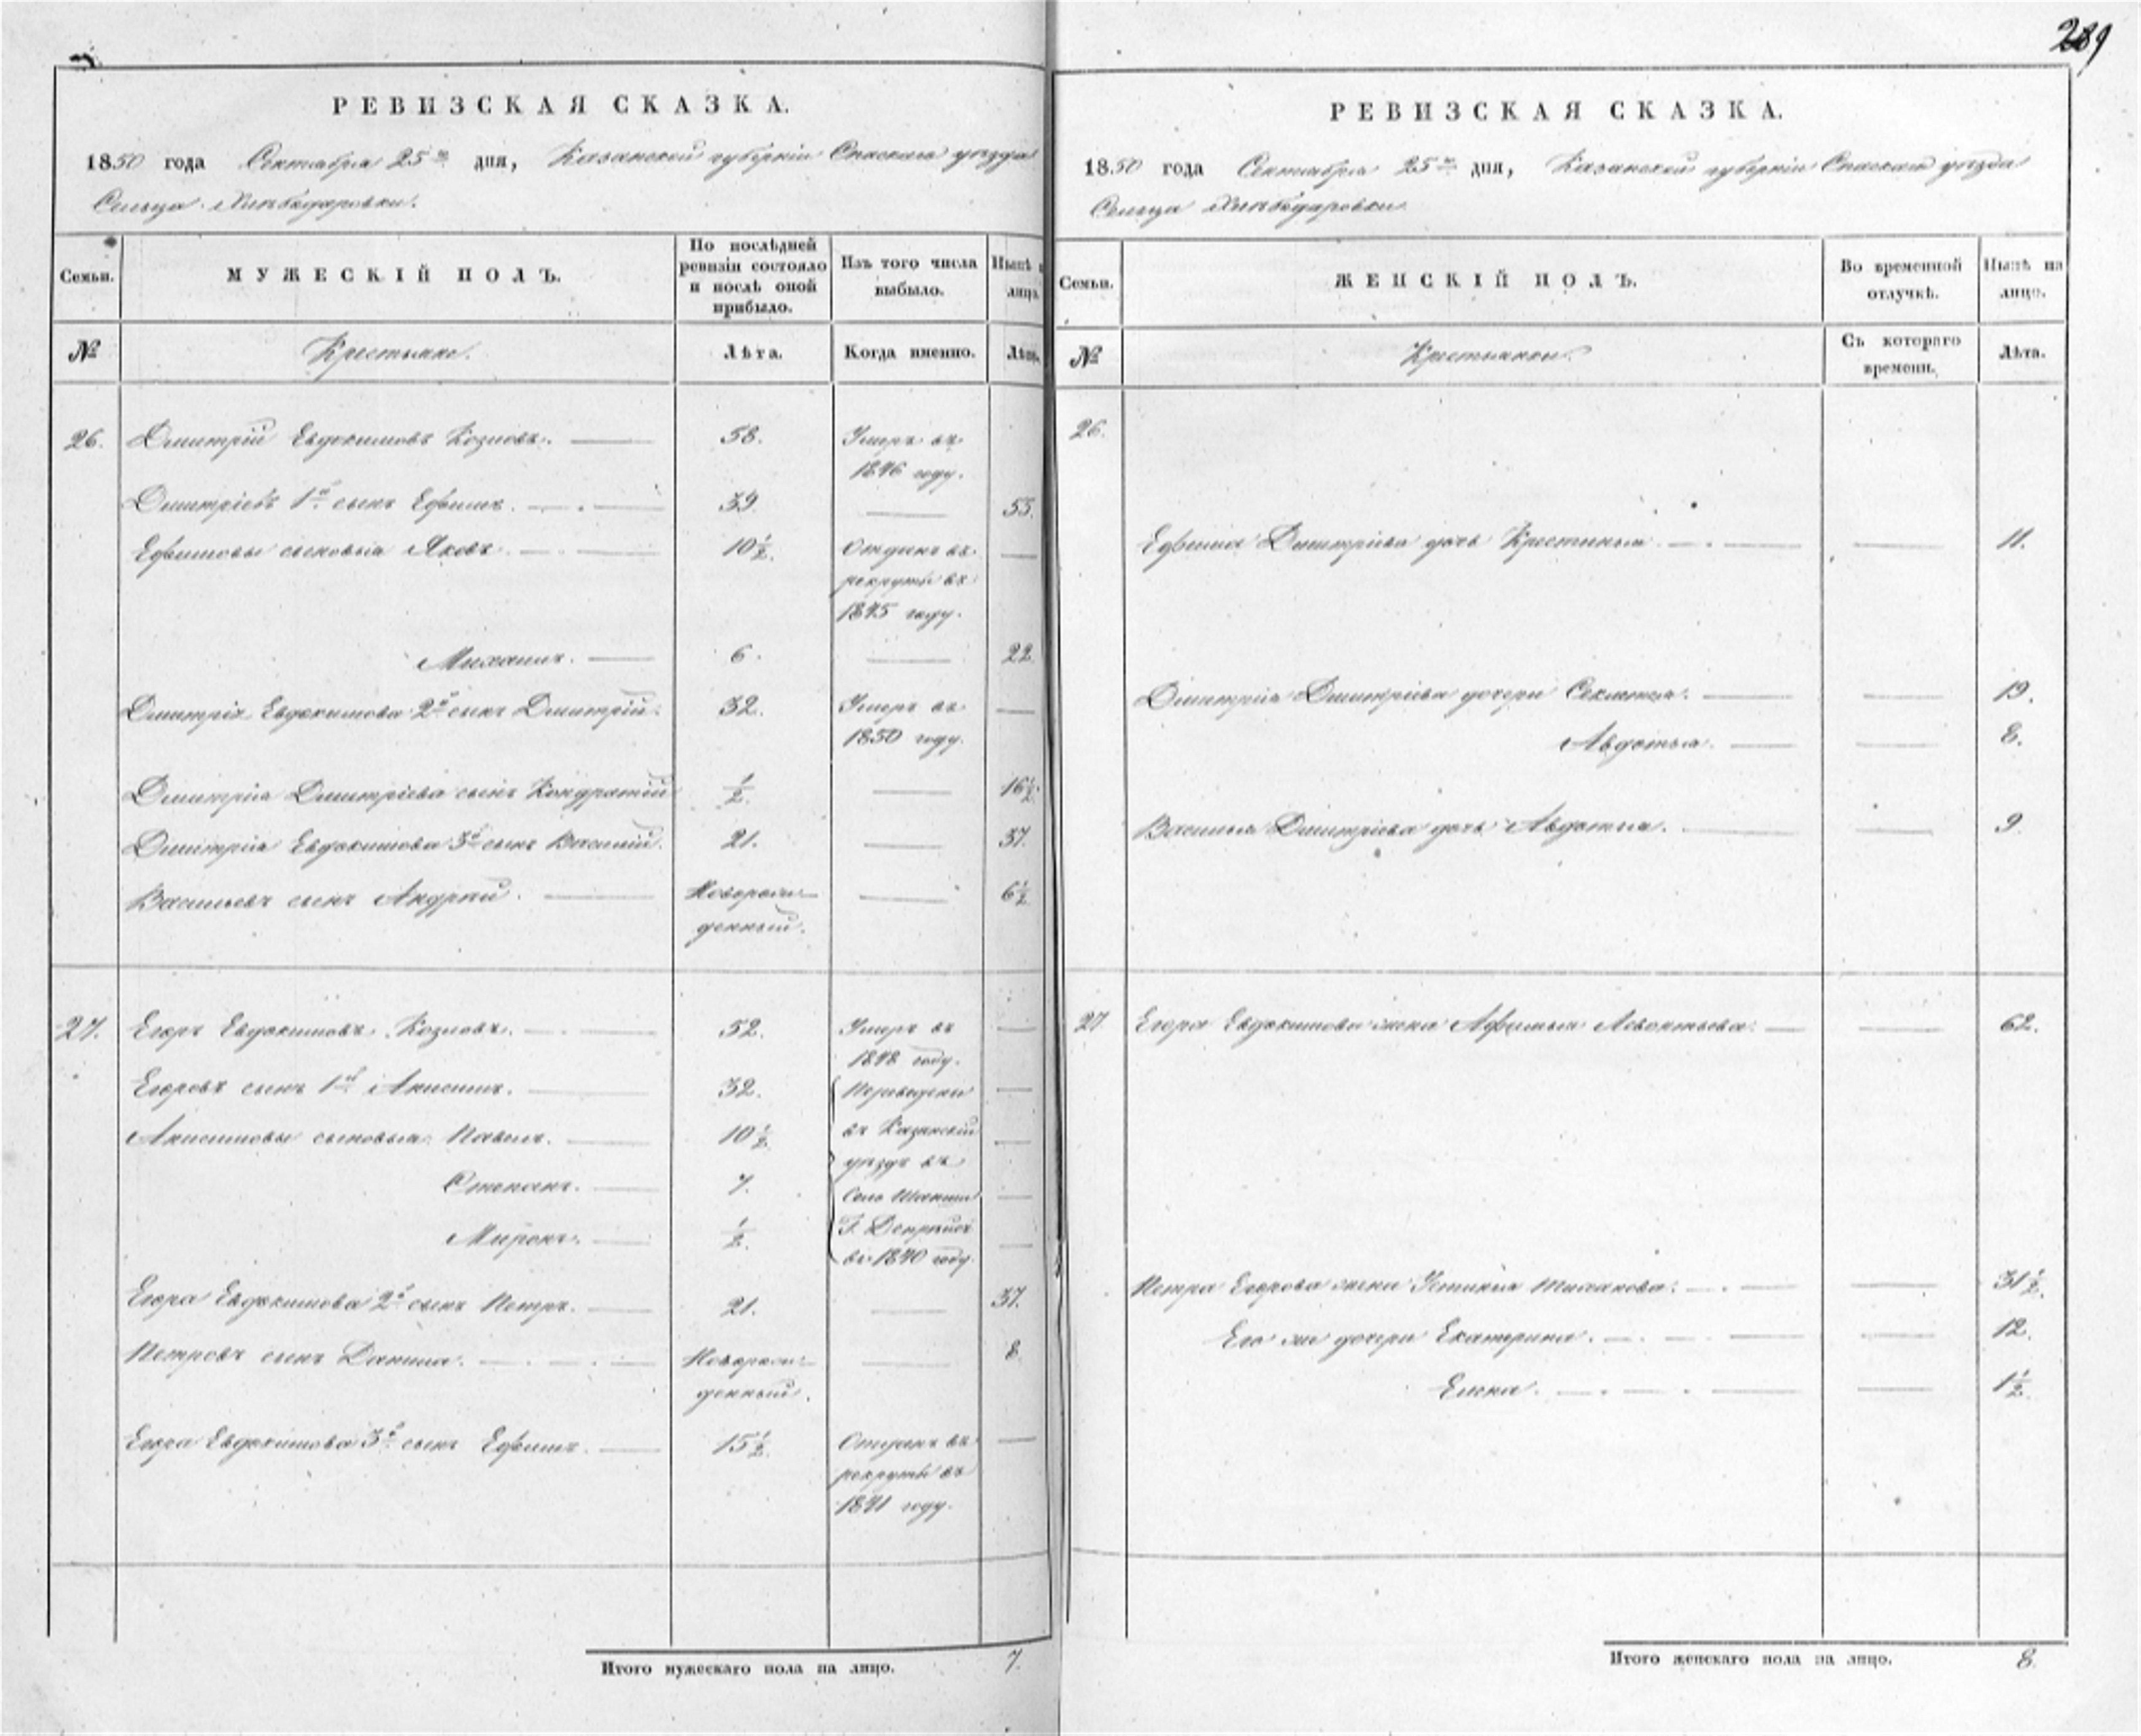 289
РЕВИЗСКАЯ СКАЗКА.
1850 года Сентября 25го дня, Казанской губерніи Спаскаго уѣзда
Сельца
Семьи.
МУЖЕСКІЙ ПОЛЪ.
По послѣдней ревизіи состояло и послѣ оной прибыло.
Изъ того числа выбыло.
Нынѣ на лицо.
№
Крестьяне.
Лѣта.
Когда именно.
Лѣта.
26. Дмитрій Евдокимовъ Козловъ. 58. Умеръ въ
1846 году.
Дмитріевъ 1й сынъ Ефимъ. 39. 55.
Ефимовы сыновья Яковъ. 10½. Отданъ въ
рекруты въ
1845 году.
Михаилъ. 6. 22.
Дмитрія Евдокимова 2й сынъ Дмитрій. 32. Умеръ въ
1850 году.
Дмитрія Дмитріева сынъ Кондратій ½. 16½.
Дмитрія Евдокимова 3й сынъ Василій. 21. 37.
Васильевъ сынъ Андрей. Новорож-
денный. 6½
27. Егоръ Евдокимовъ Козловъ. 52. Умеръ въ
1848 году.
Егоровъ сынъ 1й Анисимъ. 32. Переведены
Анисимовы сыновья Павелъ. 10½. въ Казанскій
уѣздъ въ
Степанъ. 7. Село
Миронъ. ½. Г.
въ 1840 году.
Егора Евдокимова 2й сынъ Петръ. 21. 37.
Петровъ сынъ Данила. Новорож-
денный. 8.
Егора Евдокимова 3й сынъ Ефимъ. 15½. Отданъ въ
рекруты въ
1841 году.
Итого мужескаго пола на лицо. 7.
РЕВИЗСКАЯ СКАЗКА.
1850 года Сентября 25го дня, Казанской губерніи Спаскаго уѣзда
Сельца
Семьи.
ЖЕНСКІЙ ПОЛЪ.
Во временной отлучкѣ.
Нынѣ на лицо.
№
Крестьянки.
Съ котораго времени.
Лѣта.
26.
Ефима Дмитріева дочь Крестинья. 11.
Дмитрія Дмитріева дочери 19.
Авдотья. 8.
Василья Дмитріева дочь Авдотья. 9.
27. Егора Евдокимова жена Афимья Леонтьева. 62.
Петра Егорова жена Устинья 31½.
Его же дочери Екатерина. 12.
Елена. 1½.
Итого женскаго пола на лицо. 8.